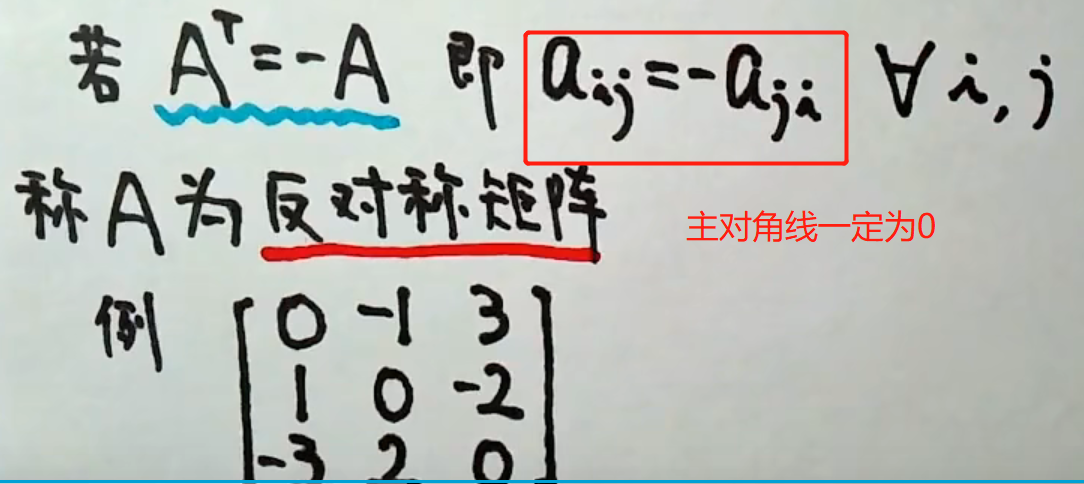 若 Aᵀ=-A 即 aᵢⱼ=-aⱼᵢ ∀ i, j
称A为反对称矩阵
主对角线一定为0
例 0 -1 3
1 0 -2
-3 2 0